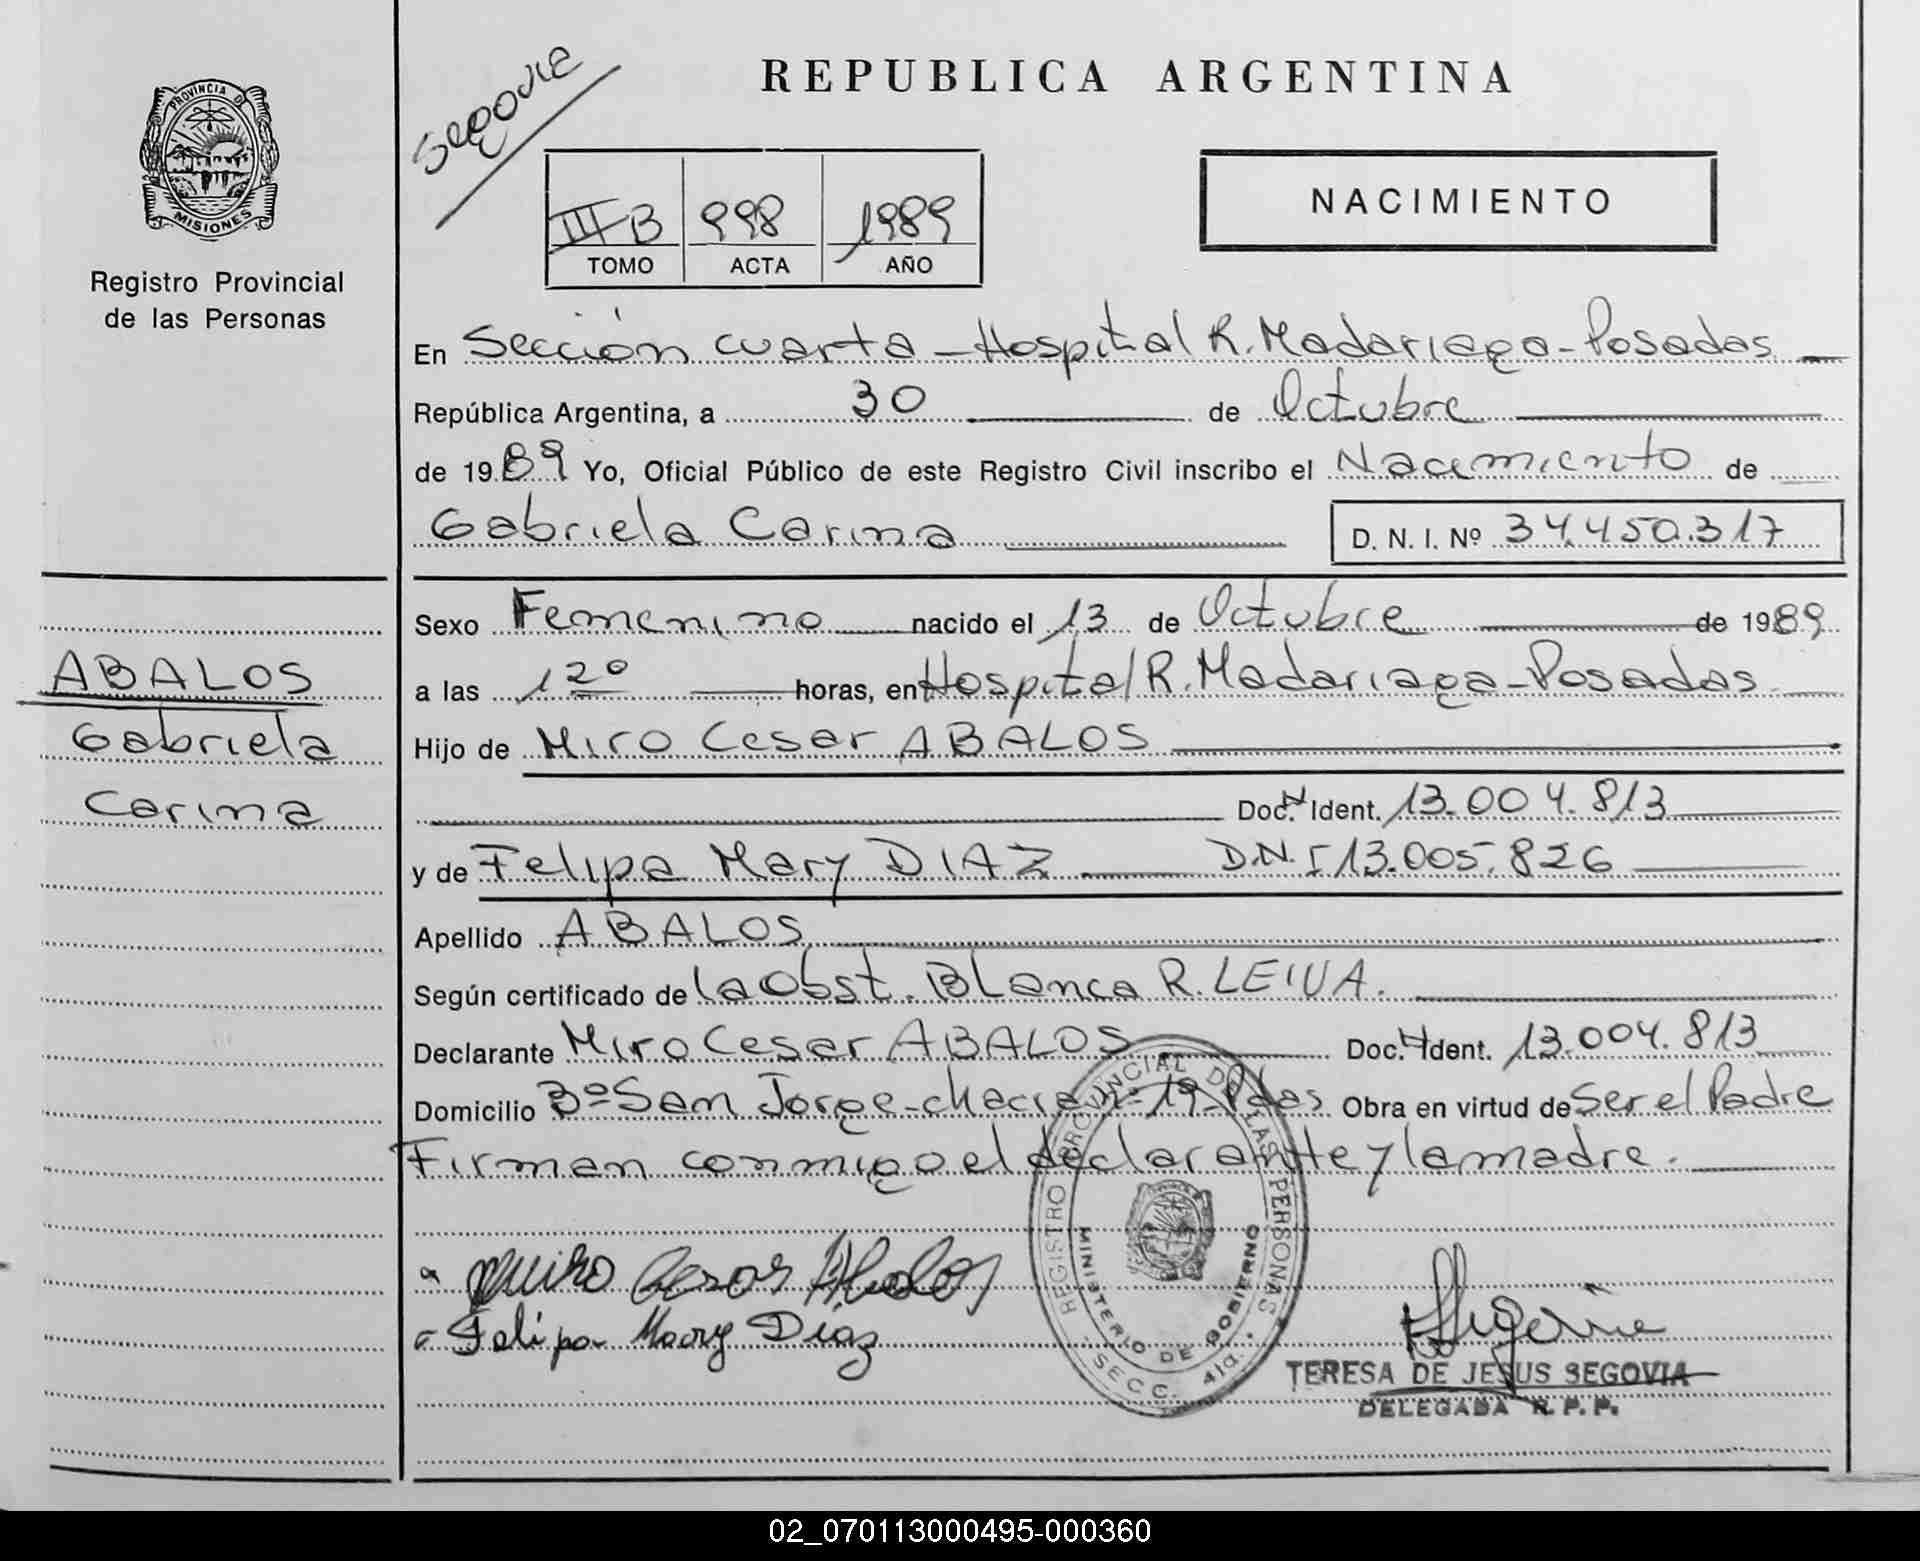 Segovia
REPUBLICA ARGENTINA
PROVINCIA DE
MISIONES
Registro Provincial
de las Personas
III B 998 1989
TOMO ACTA AÑO
NACIMIENTO
En Sección cuarta - Hospital R. Madariaga - Posadas
República Argentina, a 30 de Octubre
de 1989 Yo, Oficial Público de este Registro Civil inscribo el Nacimiento de
Gabriela Carina D. N. I. Nº 34.450.317
Sexo Femenino nacido el 13 de Octubre de 1989
a las 12º horas, en Hospital R. Madariaga - Posadas
Hijo de Miro Cesar ABALOS
Doc. N Ident. 13.004.813
y de Felipa Mary DIAZ D.N.I 13.005.826
Apellido ABALOS
Según certificado de la Obst. Blanca R. LEIVA.
Declarante Miro Cesar ABALOS Doc. N Ident. 13.004.813
Domicilio Bº San Jorge - chacra nº 19 - Pdas Obra en virtud de Ser el Padre
Firman conmigo el declarante y la madre.
ABALOS
Gabriela
Carina
Miro Cesar Abalos
Felipa Mary Diaz
REGISTRO PROVINCIAL DE LAS PERSONAS
MINISTERIO DE GOBIERNO
SECC. 4ta.
Segovia
TERESA DE JESUS SEGOVIA
DELEGADA R. P. P.
02_070113000495-000360